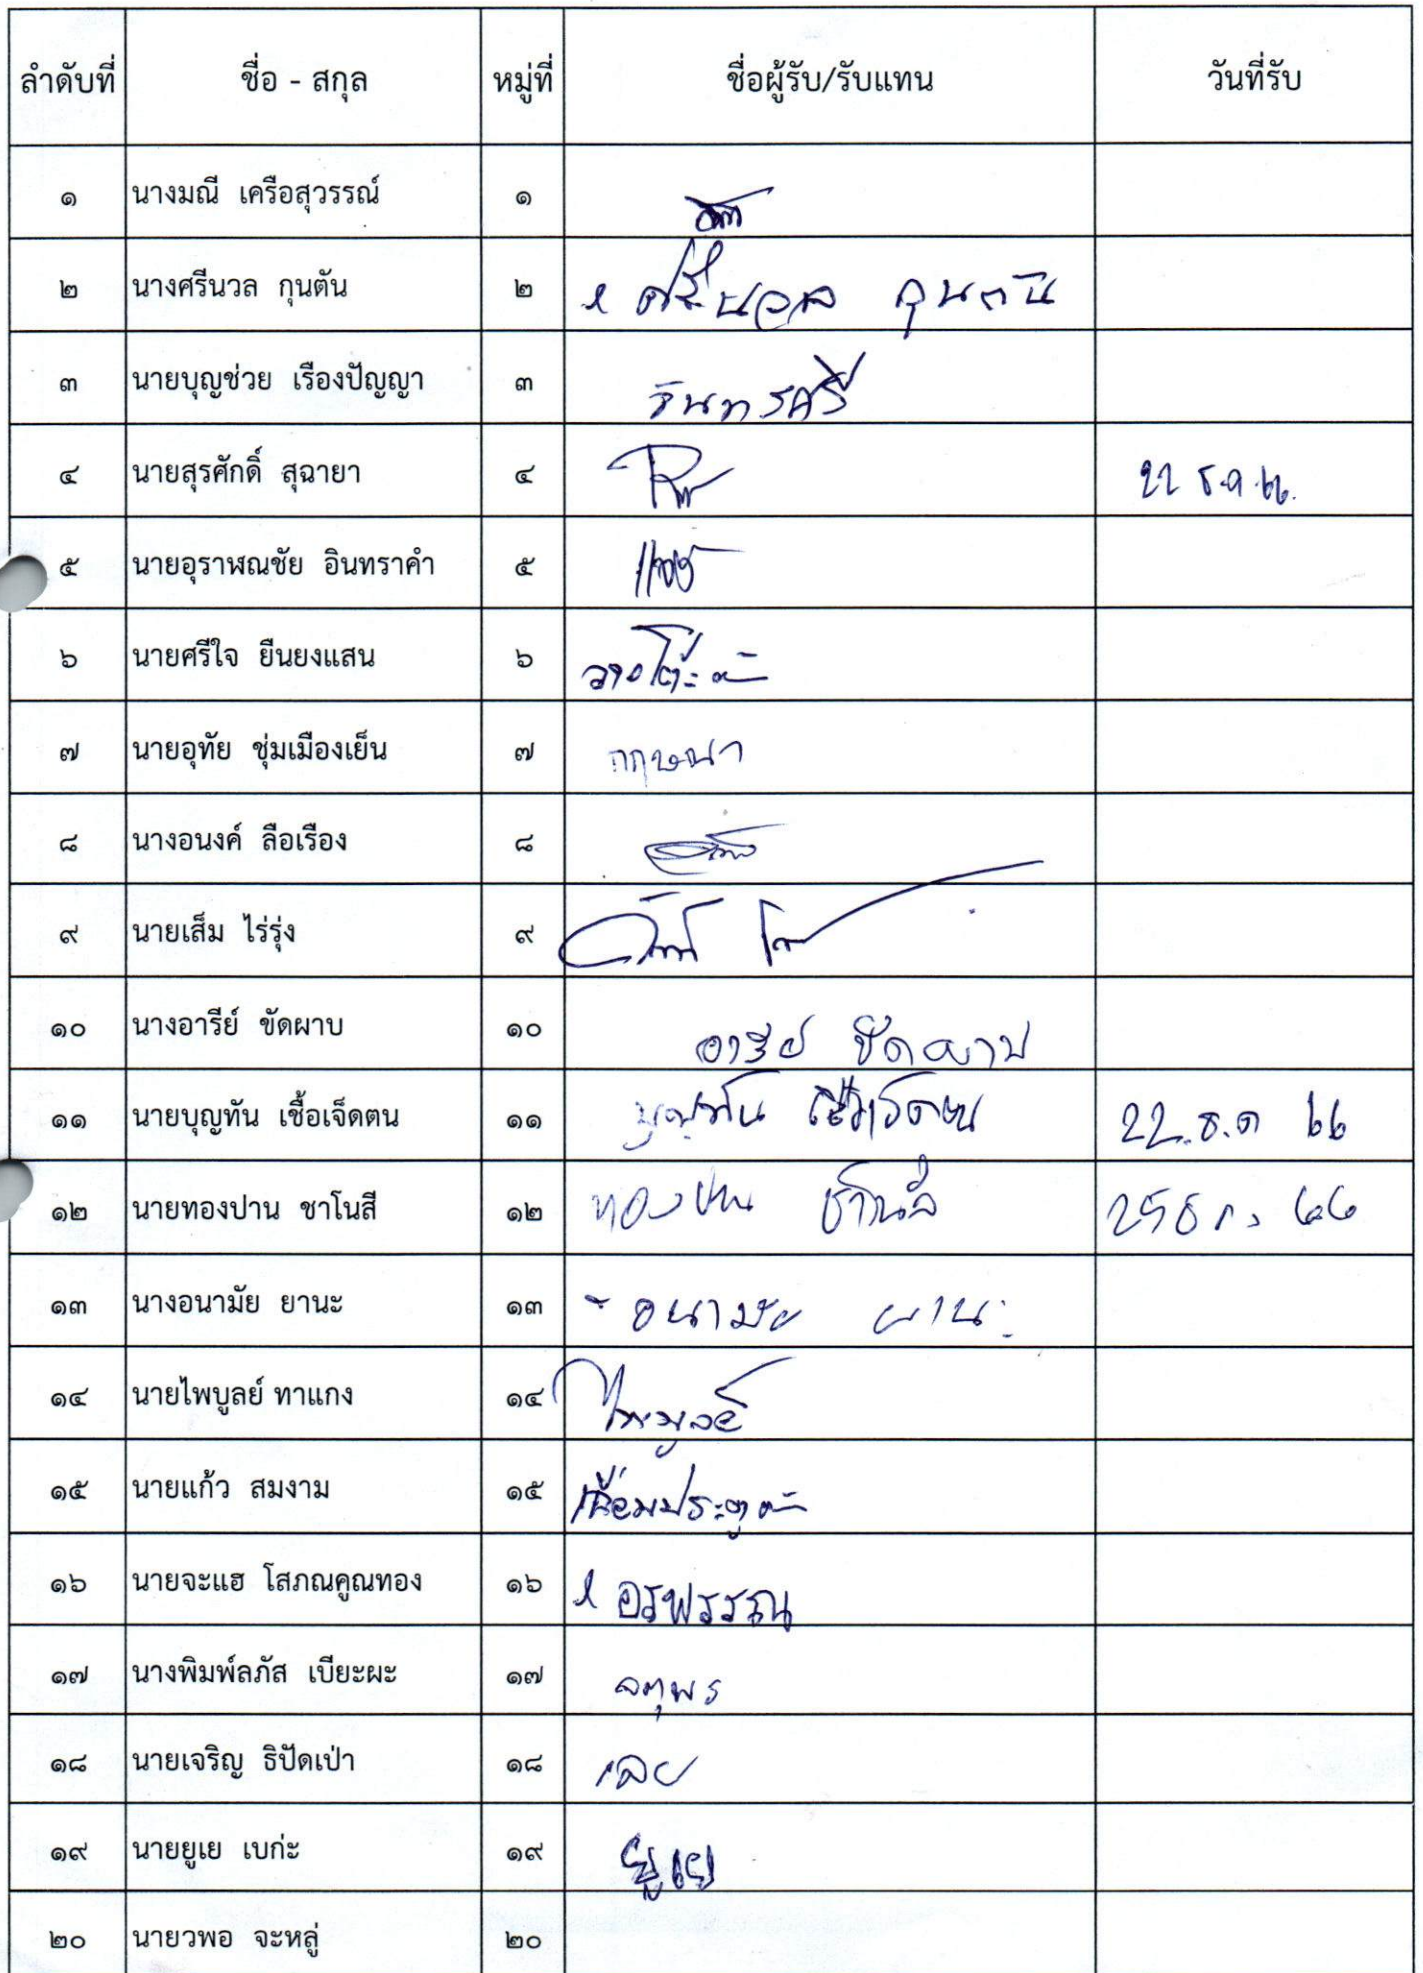 ลำดับที่ ชื่อ - สกุล หมู่ที่ ชื่อผู้รับ/รับแทน วันที่รับ
๑ นางมณี เครือสุวรรณ์ ๑
๒ นางศรีนวล กุนตัน ๒ ศรีนวล กุนตัน
๓ นายบุญช่วย เรืองปัญญา ๓ จันทรศรี
๔ นายสุรศักดิ์ สุฉายา ๔ 22 ธ.ค. ๖๖.
๕ นายอุราหณชัย อินทราคำ ๕
๖ นายศรีใจ ยืนยงแสน ๖
๗ นายอุทัย ชุ่มเมืองเย็น ๗ กฤษณา
๘ นางอนงค์ ลือเรือง ๘
๙ นายเส็ม ไร่รุ่ง ๙
๑๐ นางอารีย์ ขัดผาบ ๑๐ อารีย์ ขัดผาบ
๑๑ นายบุญทัน เชื้อเจ็ดตน ๑๑ บุญทัน เชื้อเจ็ดตน 22.ธ.ค ๖๖
๑๒ นายทองปาน ชาโนสี ๑๒ ทองปาน ชาโนสี 25 ธค. 66
๑๓ นางอนามัย ยานะ ๑๓ อนามัย ยานะ
๑๔ นายไพบูลย์ ทาแกง ๑๔ ไพบูลย์
๑๕ นายแก้ว สมงาม ๑๕
๑๖ นายจะแฮ โสภณคูณทอง ๑๖ อรพรรณ
๑๗ นางพิมพ์ลภัส เบียะผะ ๑๗ จตุพร
๑๘ นายเจริญ ธิปัดเป่า ๑๘
๑๙ นายยูเย เบก่ะ ๑๙ ยูเย
๒๐ นายวพอ จะหลู่ ๒๐